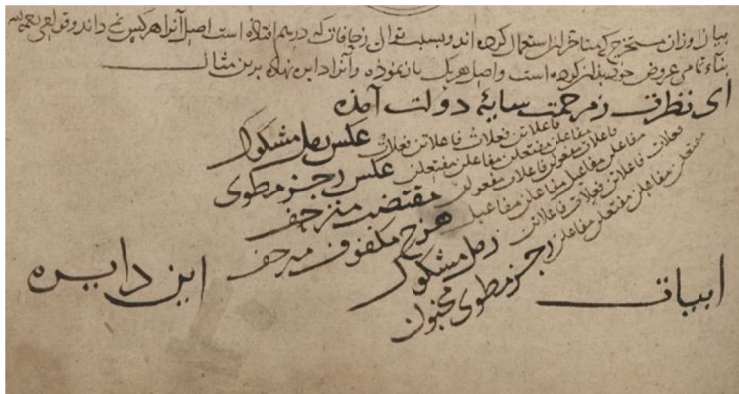 بیان اوزان مستخرج که متاخران استعمال کرده اند و بسبب توالی زحافات که درهم افتاده است اصل آنرا هرکس نمی داند و قوافی
بناء تمامی عروض خود بذان کرده است و اصل هر یک باز نموذه و آنرا دایره نهاذه برین مثال
ای نظرت زمرحمت سایهٔ دولت آمذه
فاعلاتن فعلات فاعلاتن فعلات عکس رمل مشکول
مفاعلن مفتعلن مفاعلن مفتعلن عکس رجز مطوی
فاعلات مفعولن فاعلات مفعولن مقتضب منزحف
مفاعلن مفاعیل مفاعلن مفاعیل هزج مکفوف منزحف
فعلات فاعلاتن فعلات فاعلاتن رمل مشکول
مفتعلن مفاعلن مفتعلن مفاعلن رجز مطوی مخبون
ابیات این دایره